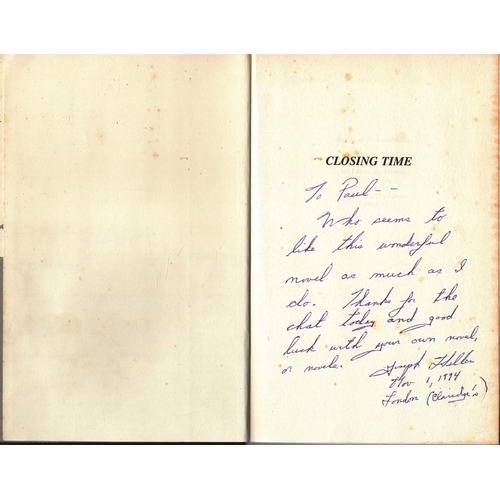 CLOSING TIME
To Paul--
Who seems to
like this wonderful
novel as much as I
do. Thanks for the
chat today and good
luck with your own novel,
or novels.
Joseph Heller
Nov 1, 1994
London (Claridge's)